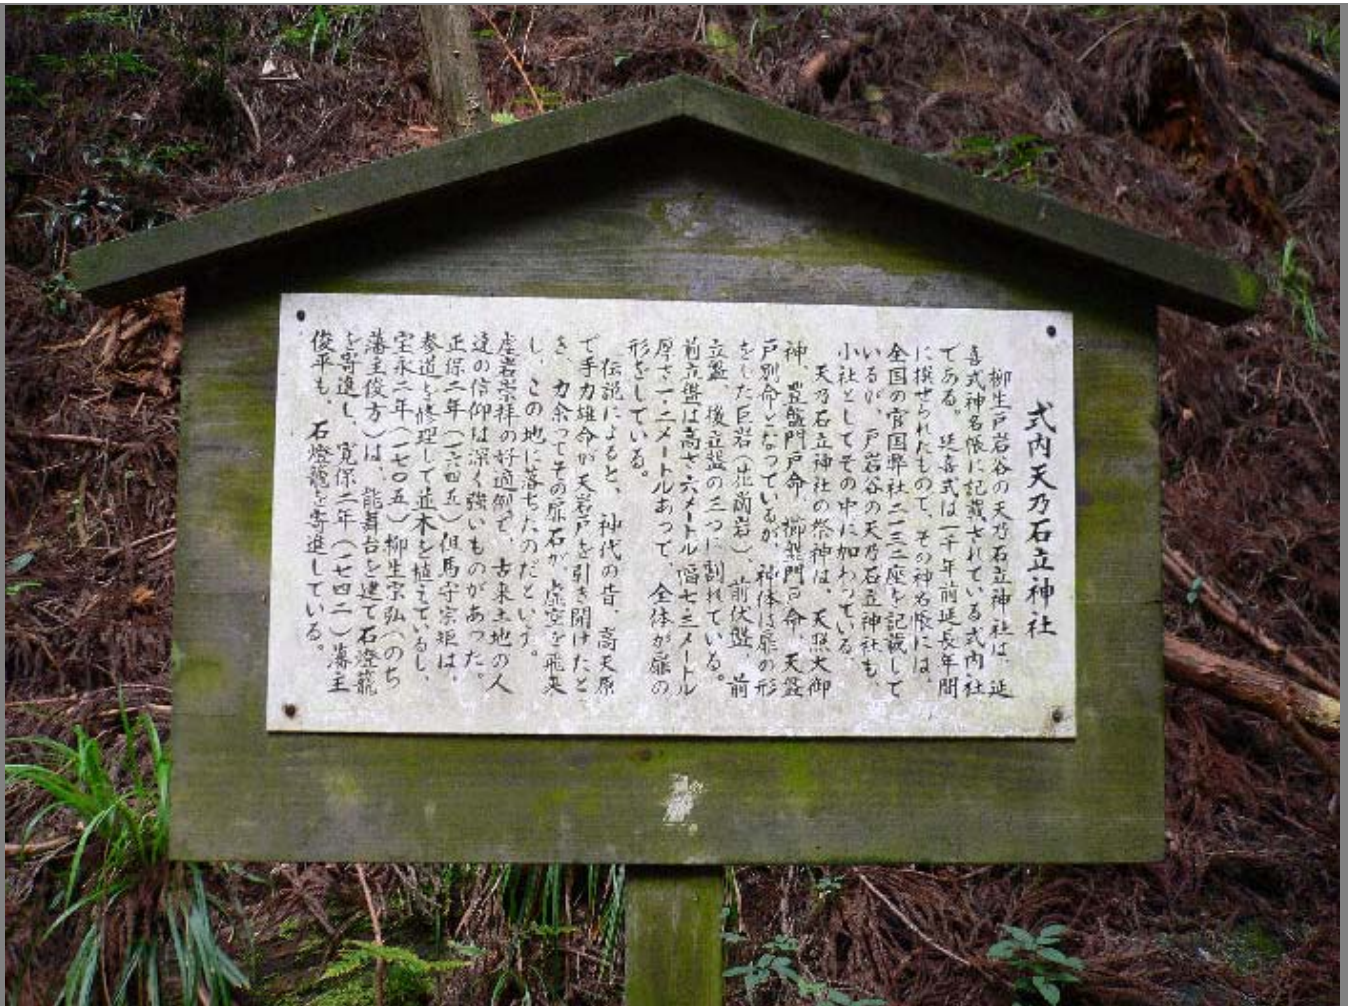 式内天乃石立神社
柳生戸岩谷の天乃石立神社は、延
喜式神名帳に記載されている式内社
である。延喜式は一千年前延長年間
に撰せられたもので、その神名帳には、
全国の官国弊社二一三二座を記載して
いるが、戸岩谷の天乃石立神社も、
小社としてその中に加わっている。
天乃石立神社の祭神は、天照大御
神、豊盤門戸命、櫛盤門戸命、天盤
戸別命となっているが、神体は扉の形
をした巨岩(花崗岩)、前伏盤、前
立盤、後立盤の三つに割れている。
前立盤は高さ六メートル幅七・三メートル
厚さ一・二メートルあって、全体が扉の
形をしている。
伝説によると、神代の昔、高天原
で手力雄命が天岩戸を引き開けたと
き、力余ってその扉石が、虚空を飛来
し、この地に落ちたのだという。
座岩崇拝の好適例で、古来土地の人
達の信仰は深く強いものがあった。
正保二年(一六四五)但馬守宗矩は、
参道を修理して並木を植えているし、
宝永二年(一七〇五)柳生宗弘(のち
藩主俊方)は、能舞台を建て石燈籠
を寄進し、寛保二年(一七四二)藩主
俊平も、石燈籠を寄進している。